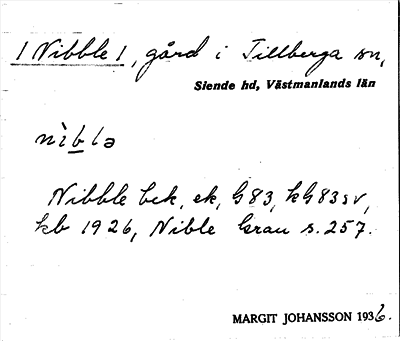 /Nibble/, gård i Tillberga sn,
Siende hd, Västmanlands län
nìbla
Nibble bek, ek, G83, kG83sv,
kb 1926, Nible Grau s. 257.
MARGIT JOHANSSON 1936.